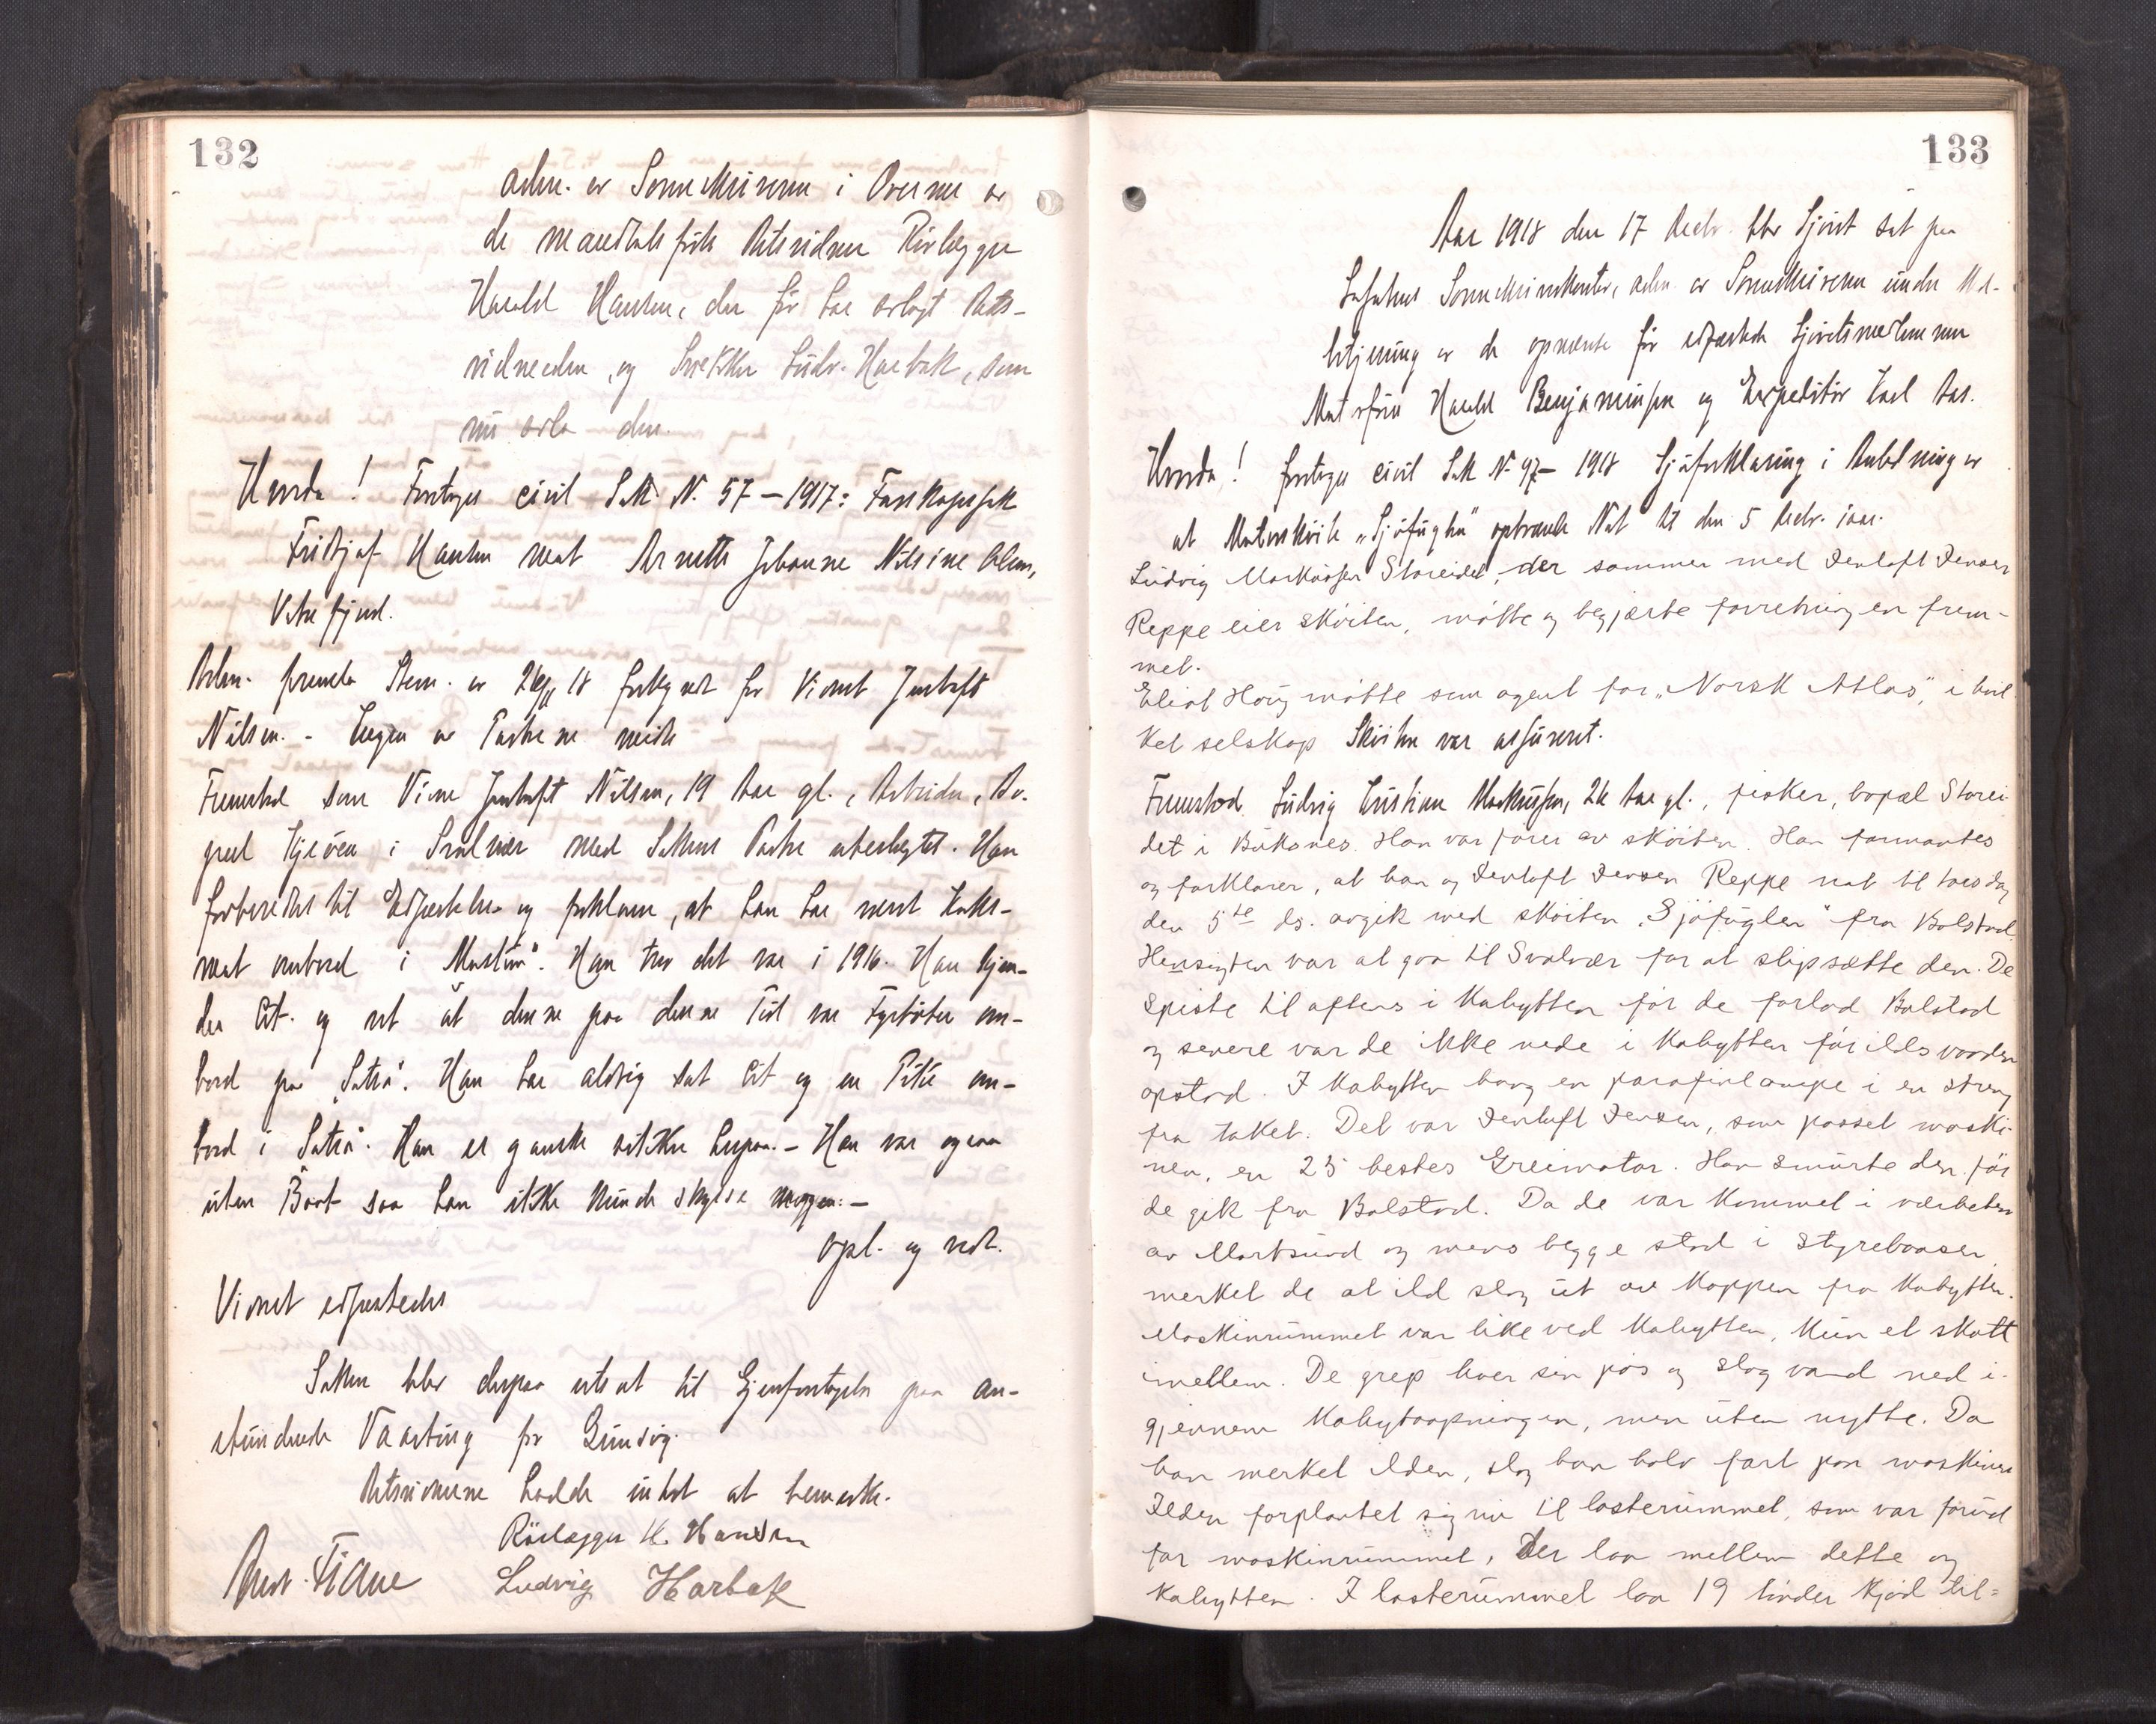 132
adm. av Sorenskriveren i Overvær av
de mandtalsførte Retsvidner Rørlægger
Harald Hansen, der før har avlagt Rets-
vidneeden, og Snekker Ludv. Harbak, som
nu avla den.
Hvorda! Foretoges civil Sak N. 57 – 1917: Farskapssak
Fridtjof Hansen mot Arnette Johanne Nilsine Olsen,
Vestrefjord.
Adm. fremla Stevn. av 26/11 18 forkyndt for Vidnet Jentoft
Nilsen. – Ingen av Parterne møtte
Fremstod som Vidne Jentoft Nilsen, 19 Aar gl., Arbeider, Bo-
pæl Kjeøen i Svolvær med Sakens Parter ubeslegtet. Han
forberedtes til Edfæstelse og forklarer, at han har været Koks-
mat ombord i
Han tror det var i 1916. Han kjen-
der Cit. og vet at denne paa denne Tid var Fyrbøter om-
bord paa „Satra". Han har aldrig set Cit og en Pike om-
bord i „Satra". Han er ganske sikker herpaa. – Han var ogsaa
uten Baat saa han ikke kunde skysse nogen. –
Opl. og vedt.
Vidnet edfæstedes
Saken blev derpaa utsat til Gjenforetagelse paa an-
stundende Vaarting for Gimsøy.
Retsvidnerne hadde intet at bemerke.
Rörlægger H. Hansen
Ludvig Harbak
133
Aar 1918 den 17 Decbr. blev Sjøret sat paa
Lofotens Sorenskriverkontor, adm. av Sorenskriveren under Med-
betjening av de opnævnte før edfæstede Sjøretsmedlemmer
Motorfører Harald Benjaminsen og Ekspeditør Karl Aas.
Hvorda! Foretoges civil Sak N. 97 – 1918 Sjøforklaring i Anledning av
at Motorskøite „Sjøfuglen" opbrændte Nat til den 5 Decbr. iaar.
Ludvig Markussen Storeidet, der sammen med Jentoft Jensen
Reppe eier skøiten, møtte og begjærte forretningen frem-
met.
Eliot Houg møtte som agent for „Norsk Atlas", i hvil
ket selskap Skøiten var assureret.
Fremstod Ludvig Kristian Markussen, 26 Aar gl., fisker, bopæl Storei
det i Buksnes. Han var fører av skøiten. Han formantes
og forklarer, at han og Jentoft Jensen Reppe nat til torsdag
den 5te ds. avgik med skøiten „Sjøfuglen" fra Balstad.
Hensigten var at gaa til Svolvær for at slipsætte den. De
spiste til aftens i kahytten før de forlod Balstad
og senere var de ikke nede i kahytten før ildsvaaden
opstod. I kahytten hang en parafinlampe i en streng
fra taket. Det var Jentoft Jensen, som passet maski-
nen, en 25 hestes Greimotor. Han smurte den før
de gik fra Balstad. Da de var kommet i nærheten
av Mortsund og mens begge stod i styrebaasen
merket de at ild slog ut av kappen fra kahytten.
Maskinrummet var like ved kahytten, kun et skott
imellem. De grep hver sin pøs og slog vand ned i-
gjennem kahytaapningen, men uten nytte. Da
han merket ilden, slog han halv fart paa maskinen
Ilden forplantet sig nu til lasterummet, som var forut
for maskinrummet, der laa mellem dette og
kahytten. I lasterummet laa 19 tønder kjød til-